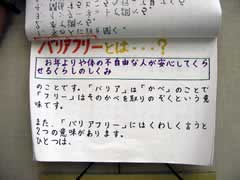 バリアフリーとは・・・?
お年よりや体の不自由な人が安心してくら
せるくらしのしくみ
のことです。「バリア」は「かべ」のことで
「フリー」はそのかべを取りのぞくという意
味です。
また、「バリアフリー」にはくわしく言うと
2つの意味があります。
ひとつは、